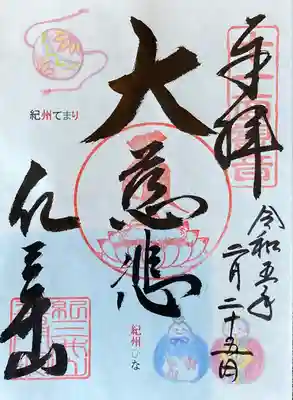 奉拝
令和五年
二月二十五日
大慈悲
紀三井山
紀州てまり
紀州びな